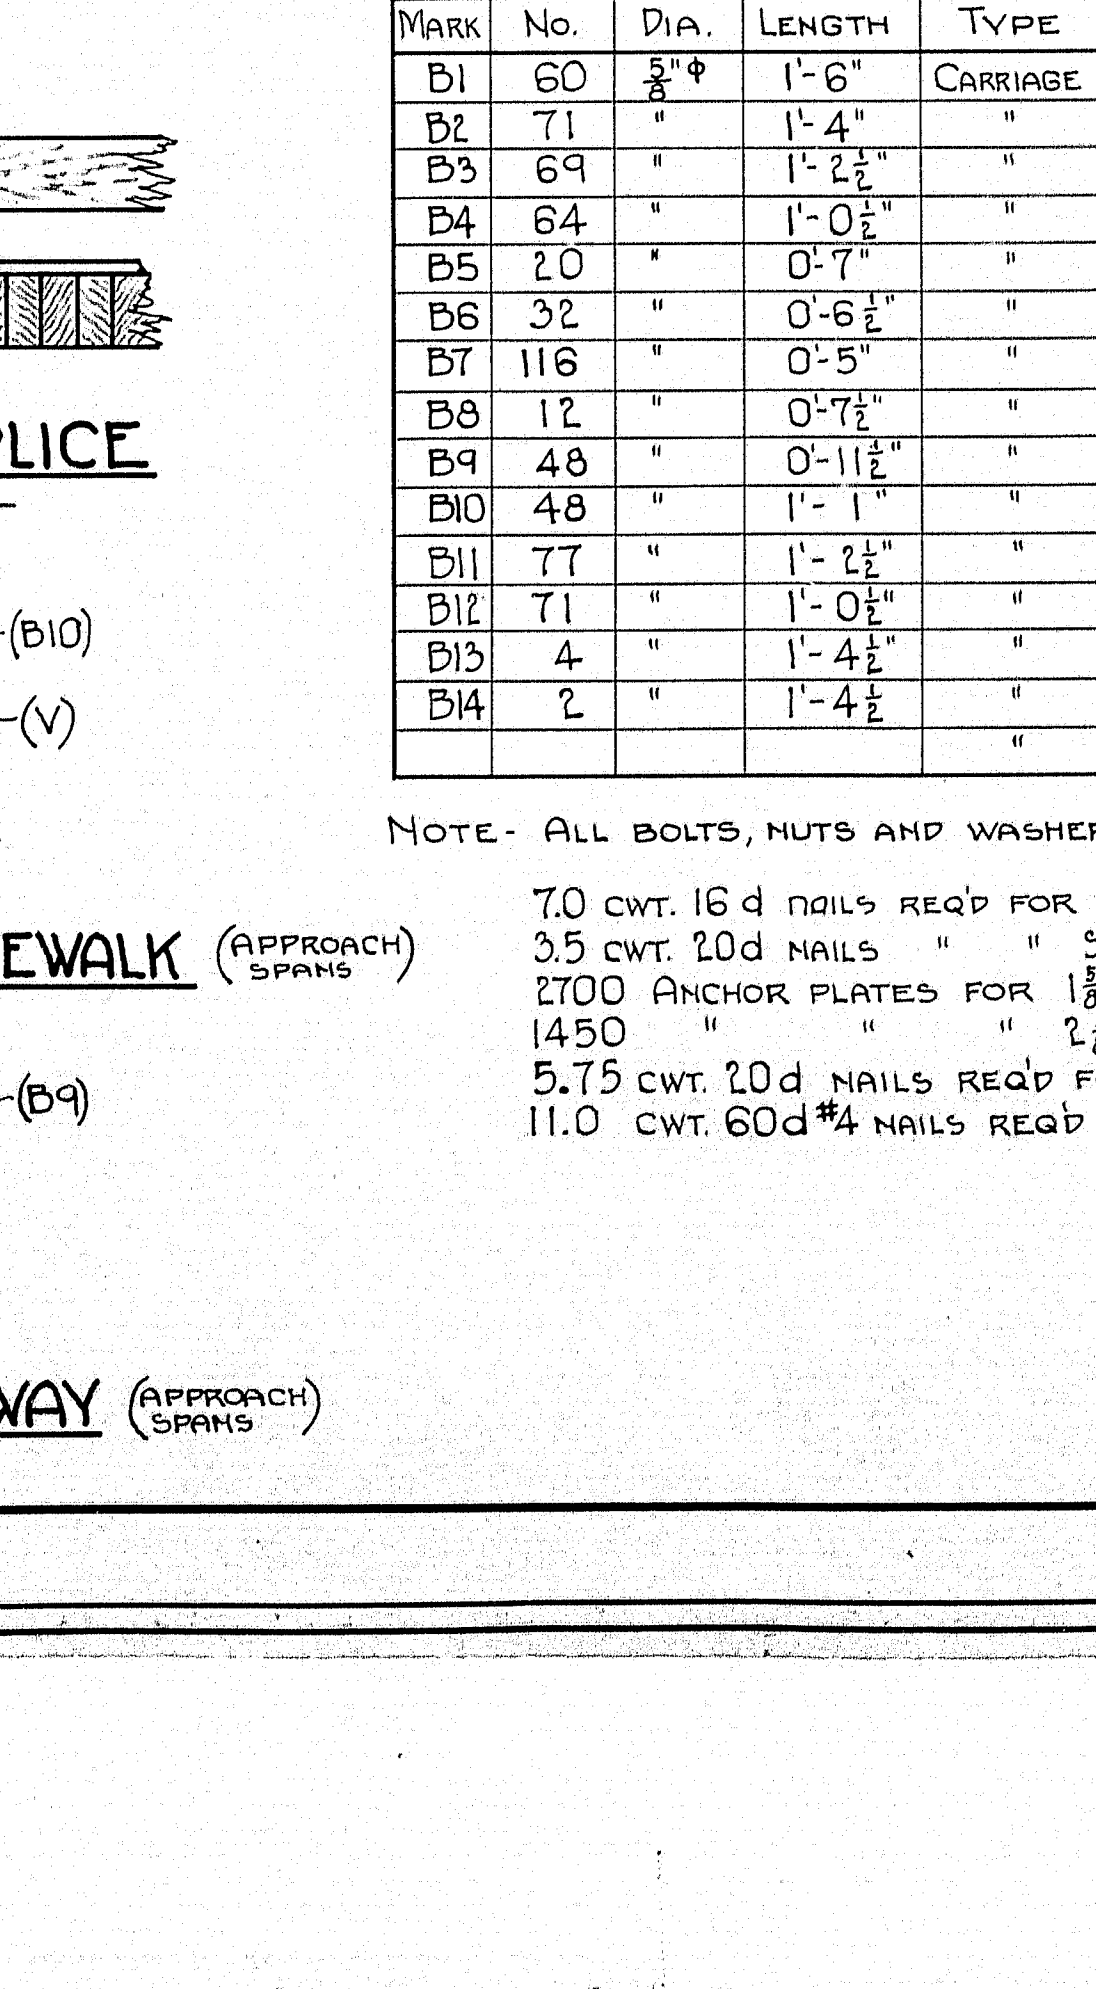 MARK No. DIA. LENGTH TYPE
B1 60 5/8"φ 1'-6" CARRIAGE
B2 71 " 1'-4" "
B3 69 " 1'-2 1/2" "
B4 64 " 1'-0 1/2" "
B5 20 " 0'-7" "
B6 32 " 0'-6 1/2" "
B7 116 " 0'-5" "
B8 12 " 0'-7 1/2" "
B9 48 " 0'-11 1/2" "
B10 48 " 1'-1" "
B11 77 " 1'-2 1/2" "
B12 71 " 1'-0 1/2" "
B13 4 " 1'-4 1/2" "
B14 2 " 1'-4 1/2 "
"
PLICE
(B10)
(V)
NOTE- ALL BOLTS, NUTS AND WASHER
7.0 CWT. 16d NAILS REQ'D FOR
3.5 CWT. 20d NAILS " " S
2700 ANCHOR PLATES FOR 1 5/8
1450 " " " 2
5.75 CWT. 20d NAILS REQ'D F
11.0 CWT. 60d #4 NAILS REQ'D
EWALK (APPROACH
SPANS)
(B9)
WAY (APPROACH
SPANS)